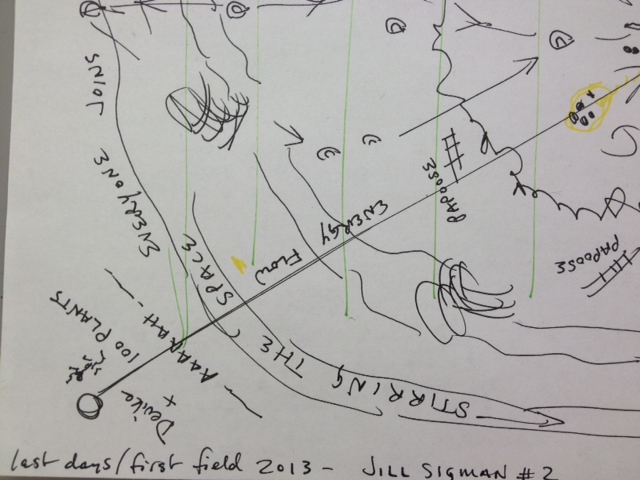 JOINS
EVERYONE
ENERGY
FLOW
PAPOOSE
PAPOOSE
SPACE
THE
STIRRING
AAAHAH -
100 PLANTS
Device
+
last days/first field 2013 - JILL SIGMAN #2